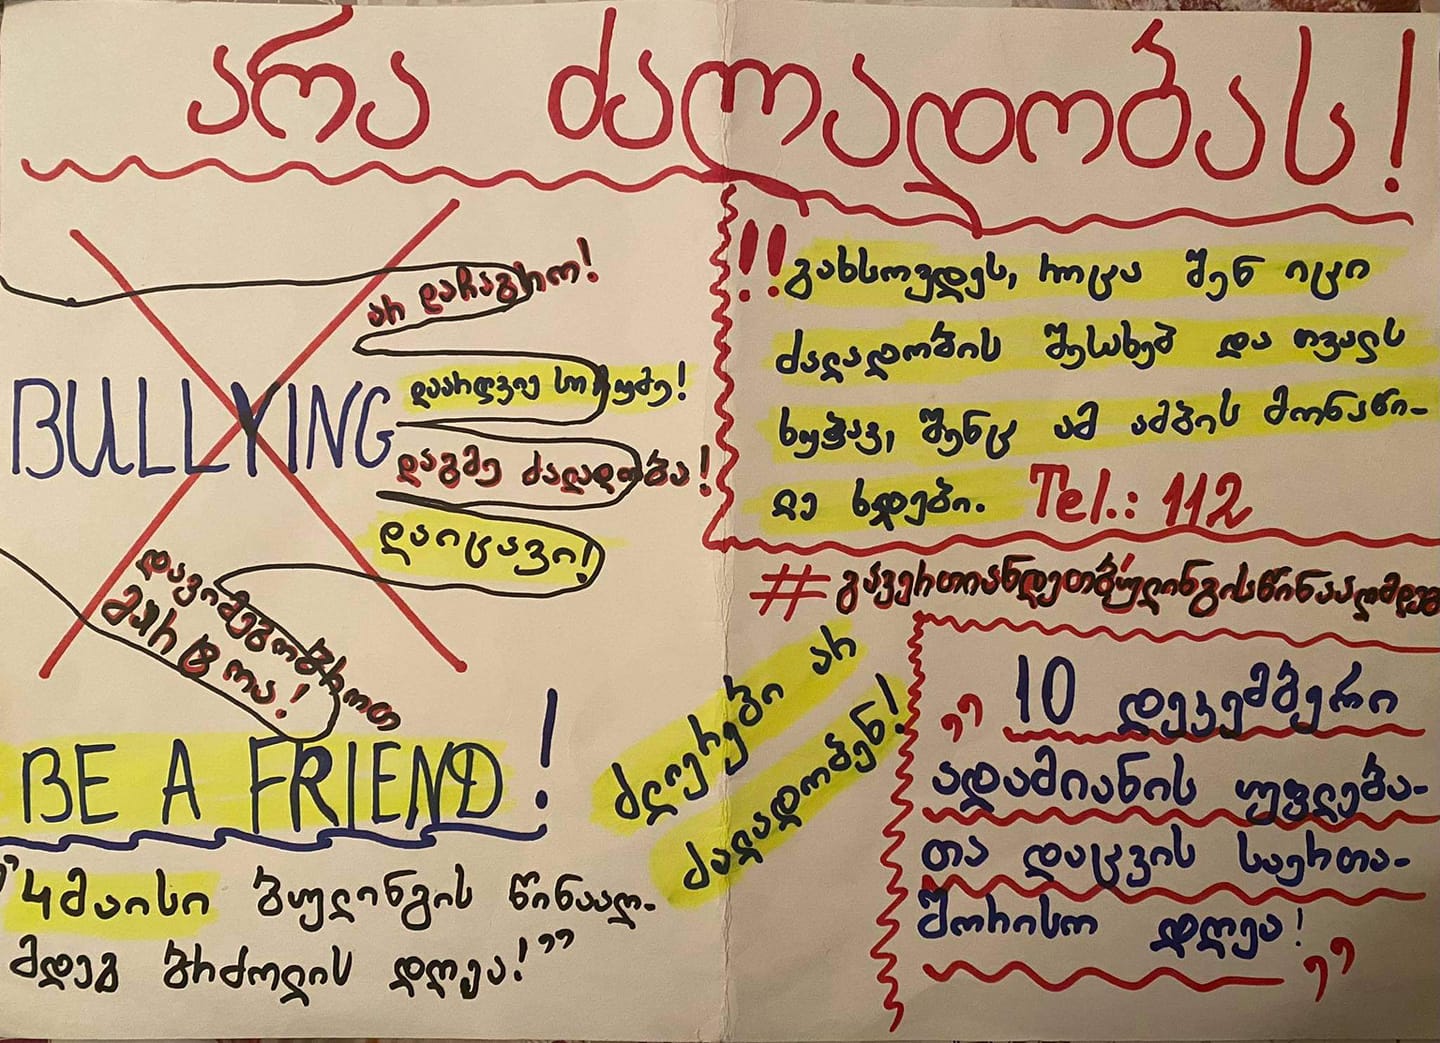 არა ძალადობას!
BULLYING
არ დაჩაგრო!
დაარღვიე სიჩუმე!
დაგმე ძალადობა!
დაიცავი!
დავიმეგობროთ
მარტოა!
BE A FRIEND!
"4 მაისი ბულინგის წინააღ-
მდეგ ბრძოლის დღეა!"
!! გახსოვდეს, როცა შენ იცი
ძალადობის შესახებ და თვალს
ხუჭავ, შენც ამ ამბის მონაწი-
ლე ხდები. Tel.: 112
#გავერთიანდეთბულინგისწინააღმდეგ
ძლიერები არ
ძალადობენ!
"10 დეკემბერი
ადამიანის უფლება-
თა დაცვის საერთა-
შორისო დღეა!"